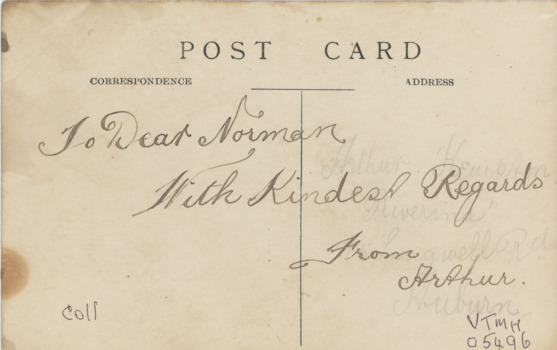 POST CARD
CORRESPONDENCE
ADDRESS
To Dear Norman
With Kindest Regards
From
Arthur.
Arthur
"Riverina"
Rd
Auburn
Coll
VTMH
05496